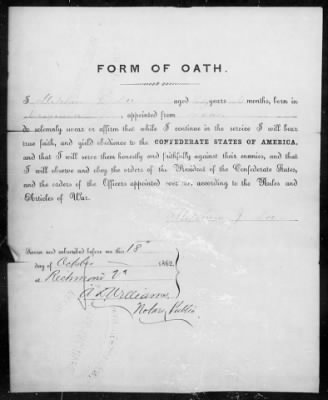 FORM OF OATH.
I Stephen D. Lee aged years months, born in
, appointed from
do solemnly swear or affirm that while I continue in the service I will bear
true faith, and yield obedience to the CONFEDERATE STATES OF AMERICA,
and that I will serve them honestly and faithfully against their enemies, and that
I will observe and obey the orders of the President of the Confederate States,
and the orders of the Officers appointed over me, according to the Rules and
Articles of War.
Sworn and subscribed before me this 18th
day of October 1862,
at Richmond Va
Williams
Notary Public